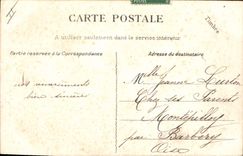 CARTE POSTALE
Timbre
A utiliser seulement dans le service intérieur
Partie réservée à la Correspondance
Adresse du destinataire
Melle Jeanne
Chez ses Parents
Montépilloy
bien sincères
par Barbery
Oise